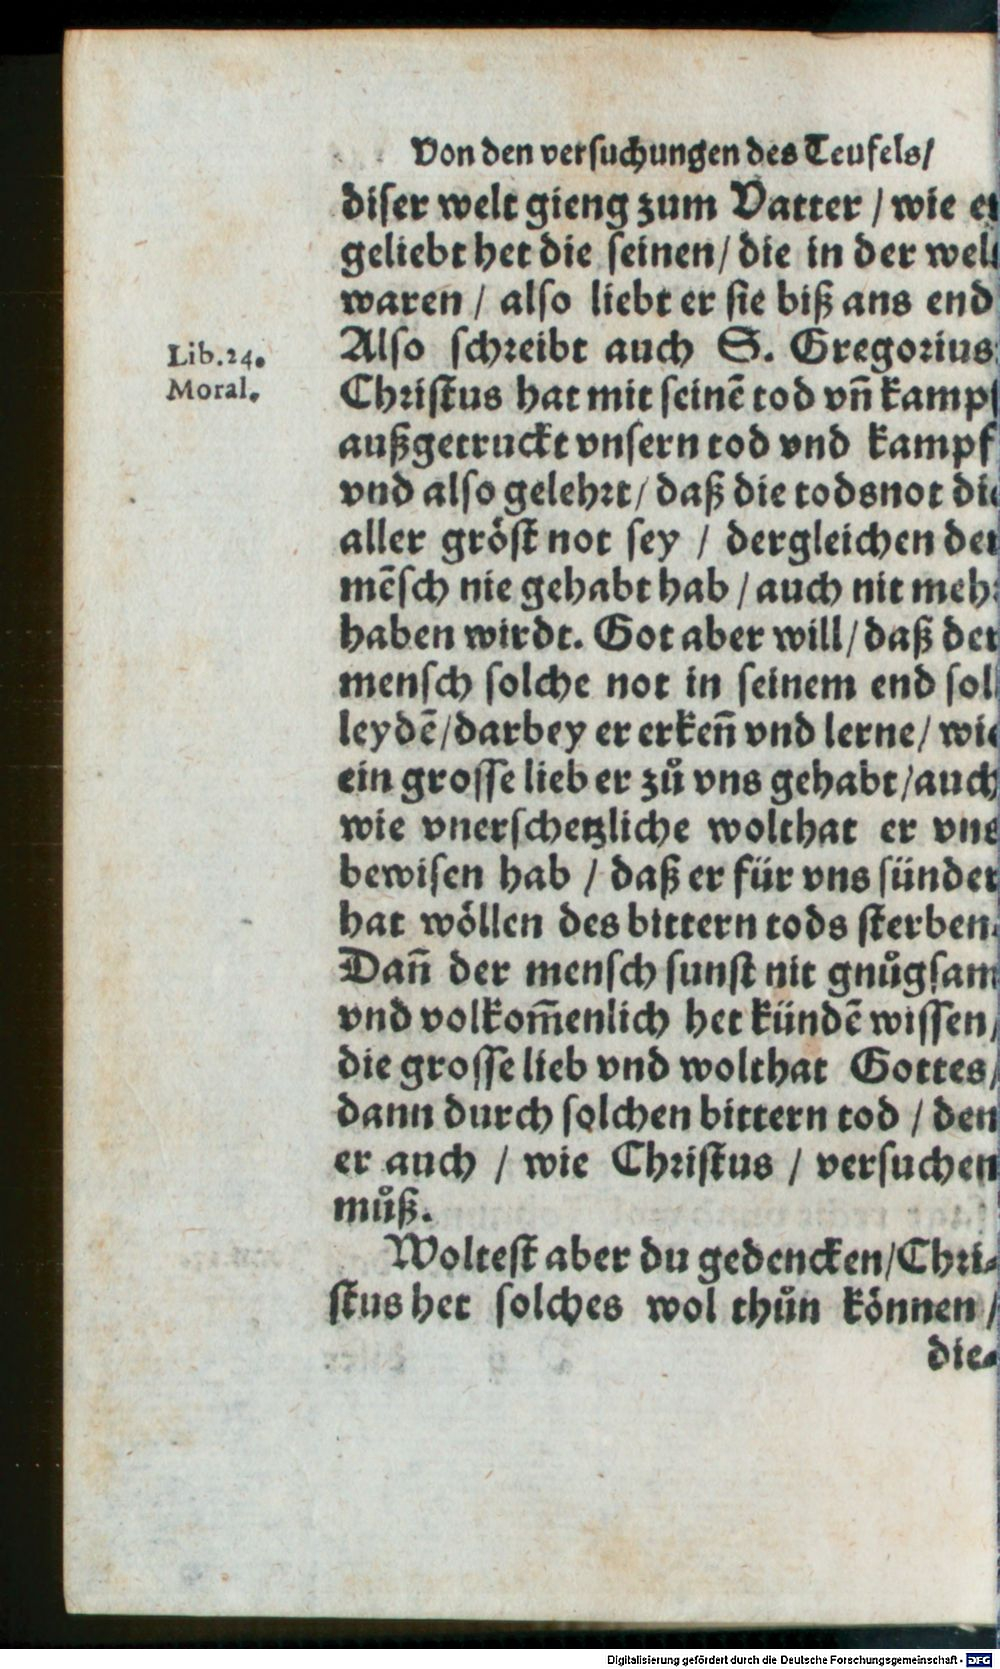 Von den versuchungen des Teufels/
diser welt gieng zum Vatter / wie er
geliebt het die seinen / die in der welt
waren / also liebt er sie biß ans end
Lib. 24.
Moral.
Also schreibt auch S. Gregorius:
Christus hat mit seinē tod vn̄ kampf
außgetruckt vnsern tod vnd kampf
vnd also gelehrt / daß die todsnot die
aller gröst not sey / dergleichen der
mēsch nie gehabt hab / auch nit mehr
haben wirdt. Got aber will / daß der
mensch solche not in seinem end soll
leydē / darbey er erken̄ vnd lerne / wie
ein grosse lieb er zů vns gehabt / auch
wie vnerschetzliche wolthat er vns
bewisen hab / daß er für vns sünder
hat wöllen des bittern tods sterben.
Dan̄ der mensch sunst nit gnůgsam
vnd volkom̄enlich het kündē wissen /
die grosse lieb vnd wolthat Gottes /
dann durch solchen bittern tod / den
er auch / wie Christus / versuchen
můß.
Woltest aber du gedencken / Chri-
stus het solches wol thůn können /
die-
Digitalisierung gefördert durch die Deutsche Forschungsgemeinschaft - DFG